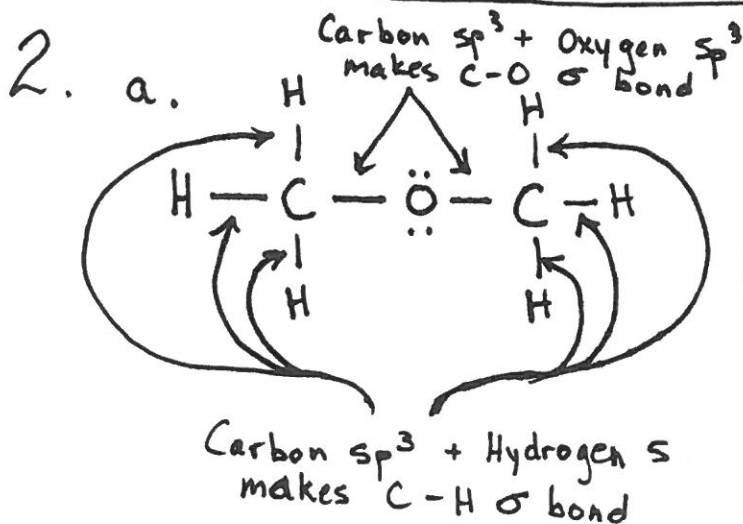 Carbon sp³ + Oxygen sp³
makes C-O σ bond
2. a.
H H
H — C — Ö — C — H
H H
Carbon sp³ + Hydrogen s
makes C - H σ bond